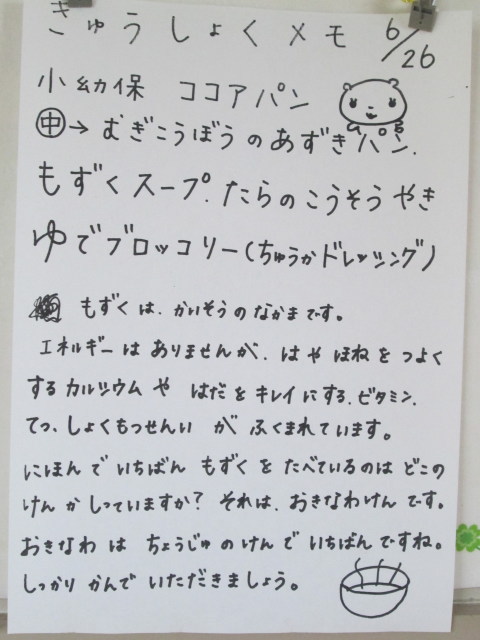 きゅうしょくメモ 6/26
小幼保 ココアパン
㊥→むぎこうぼうのあずきパン.
もずくスープ.たらのこうそうやき
ゆでブロッコリー(ちゅうかドレッシング)
もずくは、かいそうのなかまです。
エネルギーはありませんが、はやほねをつよく
するカルシウムや はだをキレイにする、ビタミン、
てつ、しょくもつせんいがふくまれています。
にほんでいちばんもずくをたべているのはどこの
けんかしっていますか? それは、おきなわけんです。
おきなわはちょうじゅのけんでいちばんですね。
しっかりかんでいただきましょう。